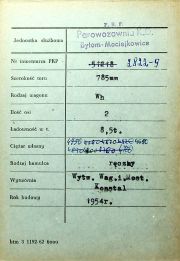 P. K. P.
Jednostka służbowa Parowozownia K.D.
Bytom-Maciejkowice
Nr inwentarza PKP 51218 2822-9
Szerokość toru 785mm
Rodzaj wagonu Wh
Ilość osi 2
Ładowność w t. 8,5t.
Ciężar własny
Rodzaj hamulca ręczny
Wytwórnia Wytw. Wag.i.Most.
Konstal
Rok budowy 1954r.